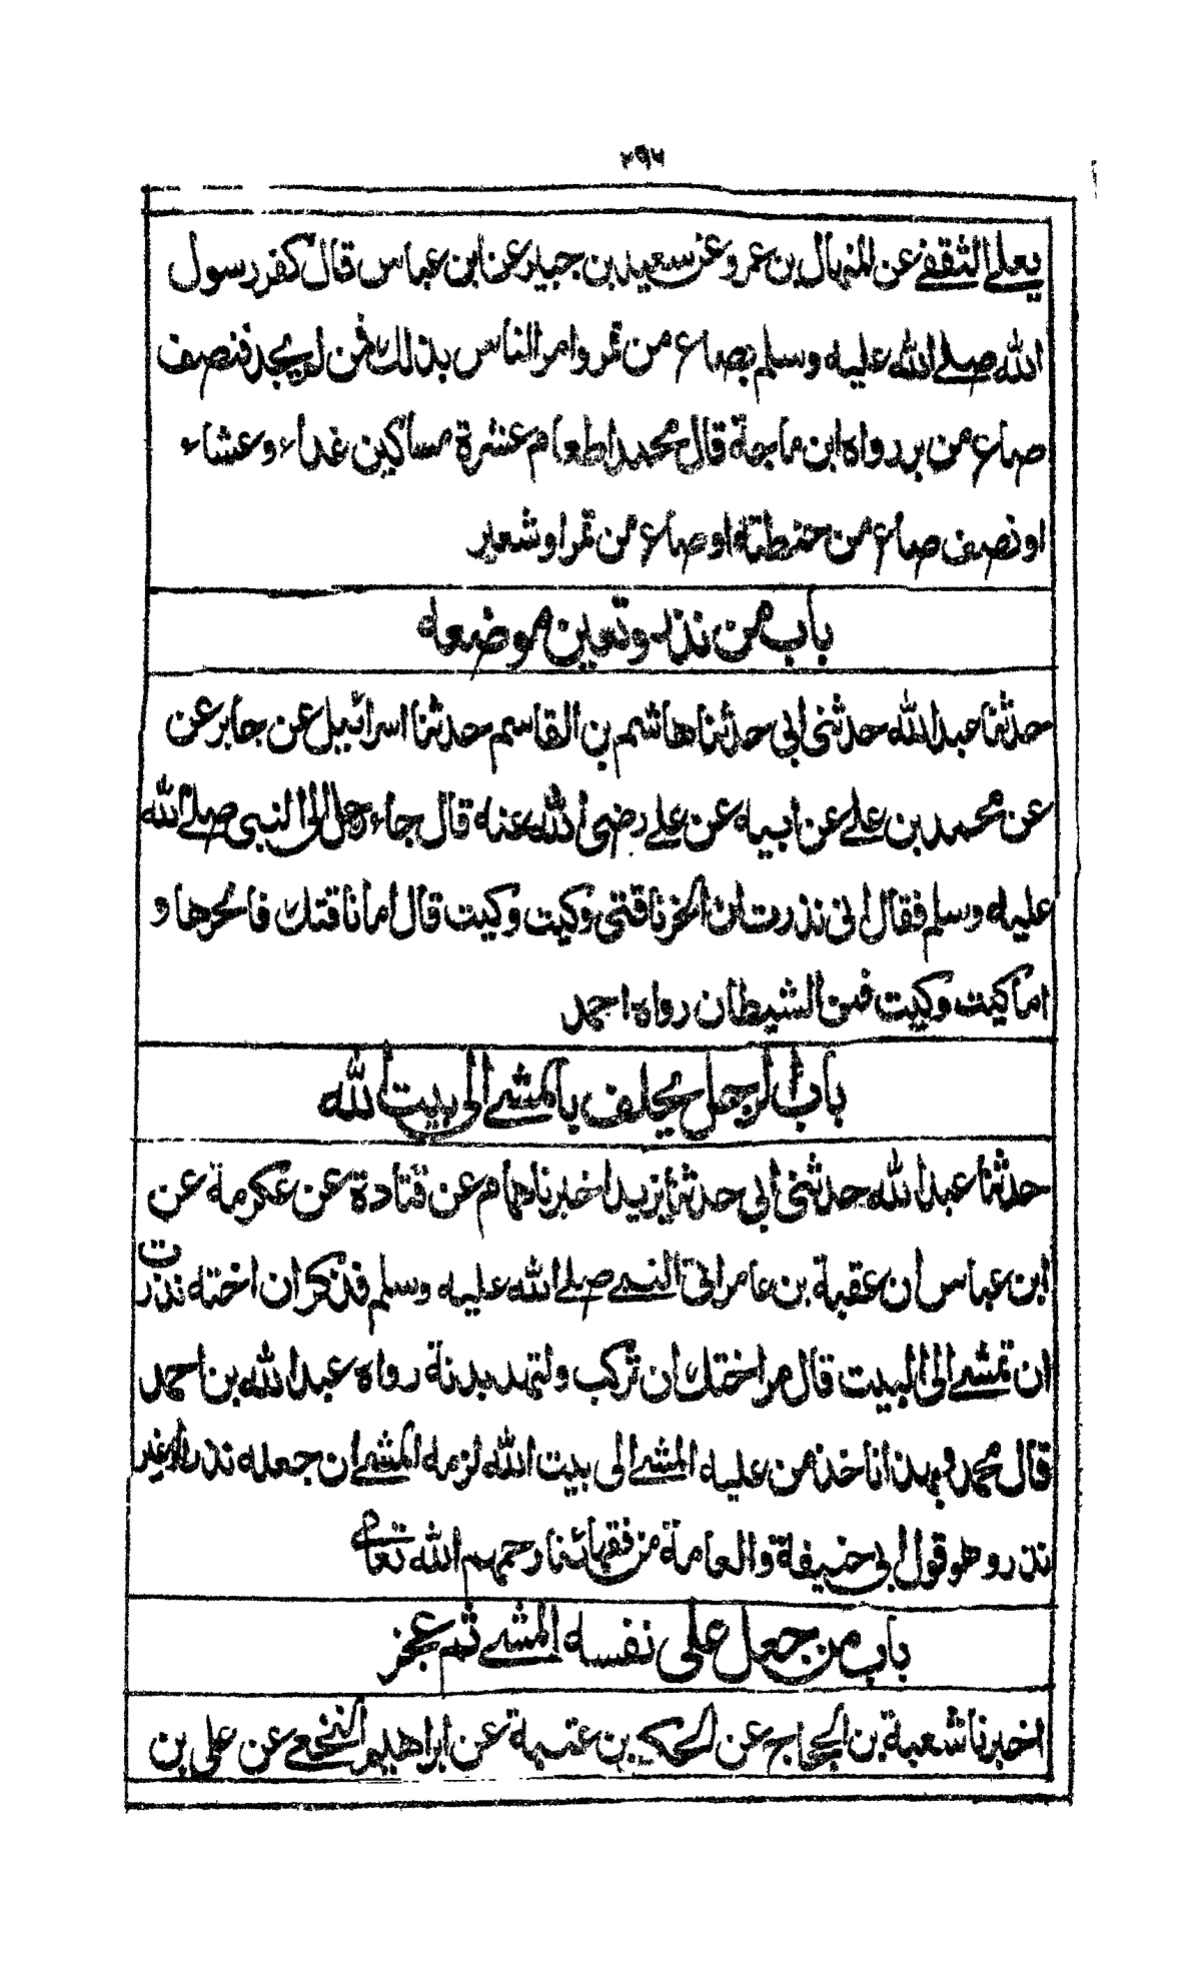 ٢٩٧
يعلى الثقفي عن المنهال بن عمرو عن سعيد بن جبير عن ابن عباس قال كفر رسول
الله صلى الله عليه وسلم بصاع من تمر وامر الناس بذلك فمن لم يجد فنصف
صاع من بر رواه ابن ماجة قال محمد اطعام عشرة مساكين غداء وعشاء
او نصف صاع من حنطة او صاع من تمر او شعير
باب من نذر وتعين موضعه
حدثنا عبد الله حدثنى ابي حدثنا هاشم بن القاسم حدثنا اسرائيل عن جابر عن
عن محمد بن علي عن ابيه عن علي رضى الله عنه قال جاء رجل الى النبى صلى الله
عليه وسلم فقال انى نذرت ان انحر ناقتى وكيت وكيت قال اما ناقتك فانحرها و
اما كيت وكيت فمن الشيطان رواه احمد
باب الرجل يحلف بالمشي الى بيت الله
حدثنا عبد الله حدثنى ابي حدثنا يزيد اخبرنا همام عن قتادة عن عكرمة عن
ابن عباس ان عقبة بن عامر اتى النبي صلى الله عليه وسلم فذكر ان اخته نذرت
ان تمشي الى البيت قال مر اختك ان تركب ولتهد بدنة رواه عبد الله بن احمد
قال محمد وبهذا ناخذ من عليه المشي الى بيت الله لزمه المشي ان جعله نذرا او غير
نذر وهو قول ابي حنيفة والعامة من فقهائنا رحمهم الله تعالى
باب من جعل على نفسه المشي ثم عجز
اخبرنا شعبة بن الحجاج عن الحكم بن عتيبة عن ابراهيم النخعي عن على بن